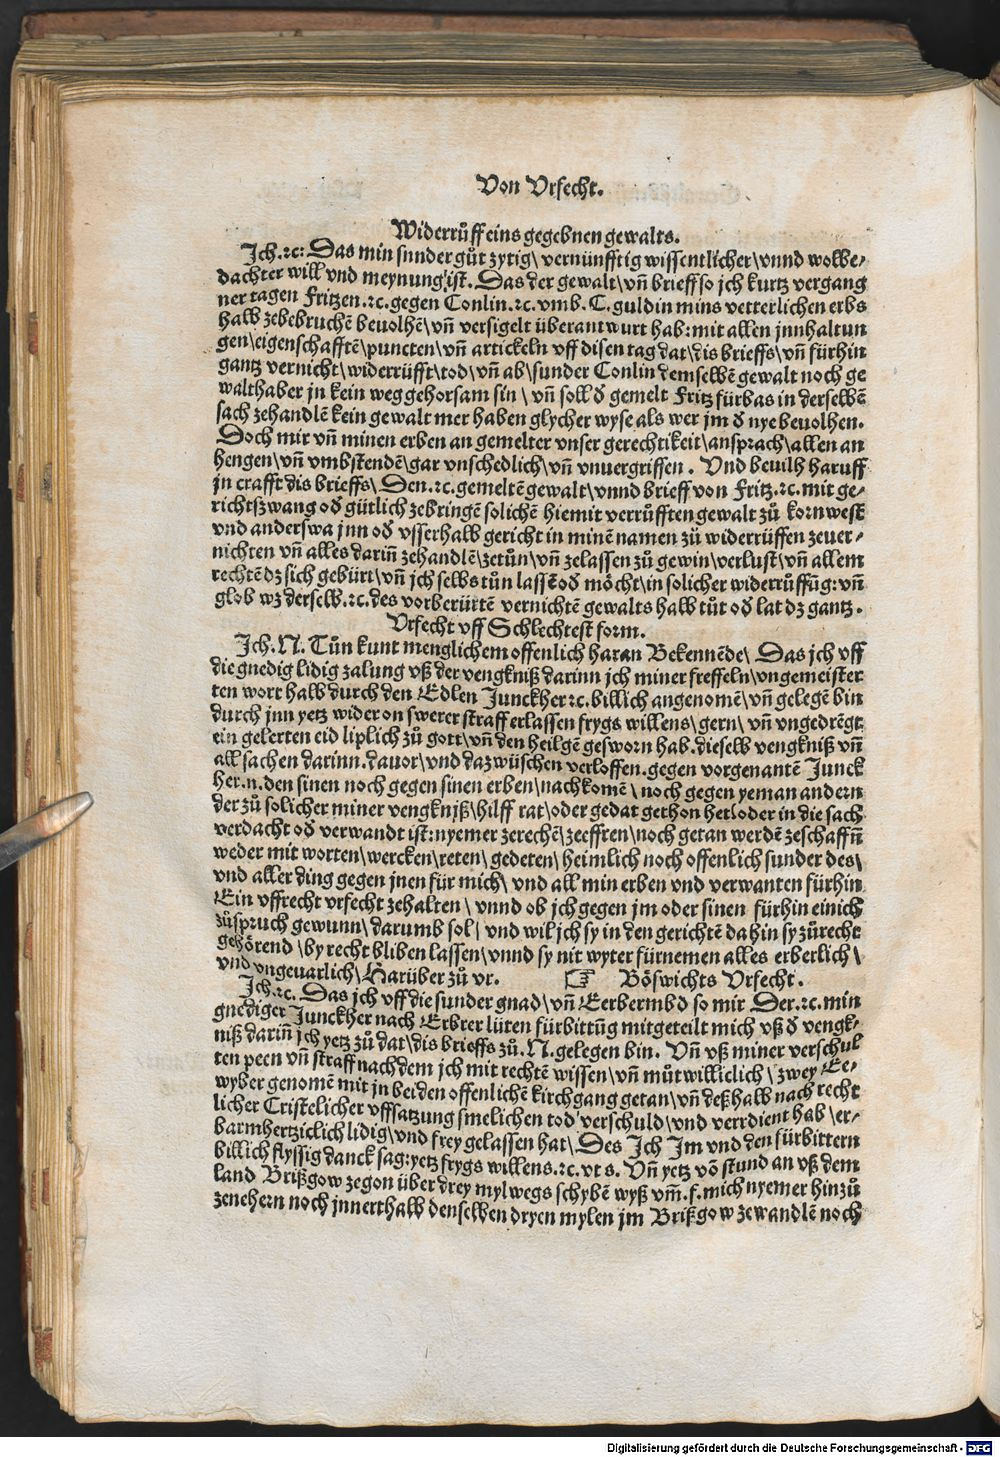 Von Vrfecht.
Widerrůff eins gegebnen gewalts.
Jch.ꝛc: Das min sunder gůt zytig\ vernünfftig wissentlicher\vnnd wolbe⸗
dachter will vnd meynung ist. Das der gewalt\vñ brieff so jch kurtz vergang
ner tagen Fritzen.ꝛc.gegen Conlin.ꝛc.vmb.C.guldin mins vetterlichen erbs
halb zebebruchē beuolhē\vñ versigelt überantwurt hab:mit allen jnnhaltun
gen\eigenschafftē\puncten\vñ artickeln vff disen tag dat\dis brieffs\vñ fürhin
gantz vernicht\widerrüfft\tod\vñ ab\sunder Conlin demselbē gewalt noch ge
walthaber jn kein weg gehorsam sin \ vñ soll đ gemelt Fritz fürbas in derselbē
sach zehandlē kein gewalt mer haben glycher wyse als wer jm đ nye beuolhen.
Doch mir vñ minen erben an gemelter vnser gerechtikeit\ansprach\allen an
hengen\vñ vmbstendē\gar vnschedlich\vñ vnuergriffen. Vnd beuilh haruff
jn crafft dis brieffs\ Den.ꝛc.gemeltē gewalt\vnnd brieff von Fritz.ꝛc.mit ge⸗
richtßzwang ođ gütlich zebringē solichē hiemit verrůfften gewalt zů kornwest
vnd anderswa jnn ođ vsserhalb gericht in minē namen zů widerrüffen zeuer⸗
nichten vñ alles dariñ zehandlē\zetůn\vñ zelassen zů gewin\verlust\vñ allem
rechtē dz sich gebürt\vñ jch selbs tůn lassē ođ möcht\in solicher widerrůffūg:vñ
glob wz derselb.ꝛc.des vorberürtē vernichtē gewalts halb tůt ođ lat dz gantz.
Vrfecht vff Schlechtest form.
Jch.N. Tůn kunt menglichem offenlich haran Bekennēde\ Das jch vff
die gnedig lidig zalung vß der vengkniß darinn jch miner freffeln\vngemeister
ten wort halb durch den Edlen Junckher ꝛc.billich angenomē\vñ gelegē bin
durch jnn yetz wider on swerer straff erlassen frygs willens\gern\ vñ vngedrēgt
ein gelerten eid liplich zů gott\vñ den heilgē gesworn hab.dieselb vengkniß vñ
all sachen darinn.dauor\vnd dazwüschen verloffen.gegen vorgenantē Junck
her.n.den sinen noch gegen sinen erben\nachkomē \ noch gegen yeman andern
der zů solicher miner vengknjß\hilff rat\oder gedat gethon het\oder in die sach
verdacht ođ verwandt ist:nyemer zerechē\zeeffren\noch getan werdē zeschaffñ
weder mit worten\wercken\reten\ gedeten\ heimlich noch offenlich sunder des\
vnd aller ding gegen jnen für mich\ vnd all min erben vnd verwanten fürhin
Ein vffrecht vrfecht zehalten \ vnnd ob jch gegen jm oder sinen fürhin einich
zůspruch gewunn\ darumb sol\ vnd wil jch sy in den gerichtē dahin sy zůrecht
gehörend \by recht bliben lassen\vnnd sy nit wyter fürnemen alles erberlich\
vnd vngeuarlich\ Harüber zů vr. ☞ Böswichts Vrfecht.
Jch.ꝛc. Das jch vff die sunder gnad\vñ Eerbermbd so mir Der.ꝛc.min
gnediger Junckher nach Erbrer lüten fürbittūg mitgeteilt mich vß đ vengk⸗
niß dariñ jch yetz zů dat\dis brieffs zů.N.gelegen bin. Vñ vß miner verschul
ten peen vñ straff nachdem jch mit rechtē wissen\vñ můtwilliclich\ zwey Ee⸗
wyber genomē mit jn beiden offenlichē kirchgang getan\vñ deßhalb nach recht
licher Cristelicher vffsatzung smelichen tod verschuld\vnd verrdient hab \er⸗
barmhertziclich lidig\vnd frey gelassen hat\ Des Jch Jm vnd den fürbittern
billich flyssig danck sag:yetz frygs willens.ꝛc.vt s. Vñ yetz võ stund an vß dem
land Brißgow zegon über drey myl wegs schybē wyß vm̄.f.mich nyemer hinzů
zenehern noch jnnerthalb denselben dryen mylen jm Brißgow zewandlē noch
Digitalisierung gefördert durch die Deutsche Forschungsgemeinschaft - DFG